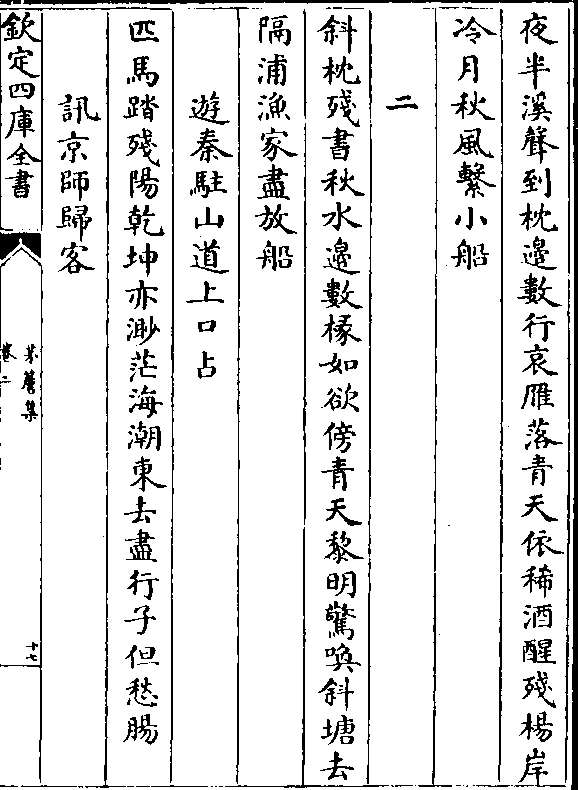 夜半溪聲到枕邊數行哀雁落青天依稀酒醒殘楊岸
冷月秋風繫小船
二
斜枕殘書秋水邊數椽如欲傍青天黎明驚喚斜塘去
隔浦漁家盡放船
遊秦駐山道上口占
匹馬踏殘陽乾坤亦渺茫海潮東去盡行子但愁腸
訊京師歸客
欽定四庫全書
茅簷集
卷二
十七